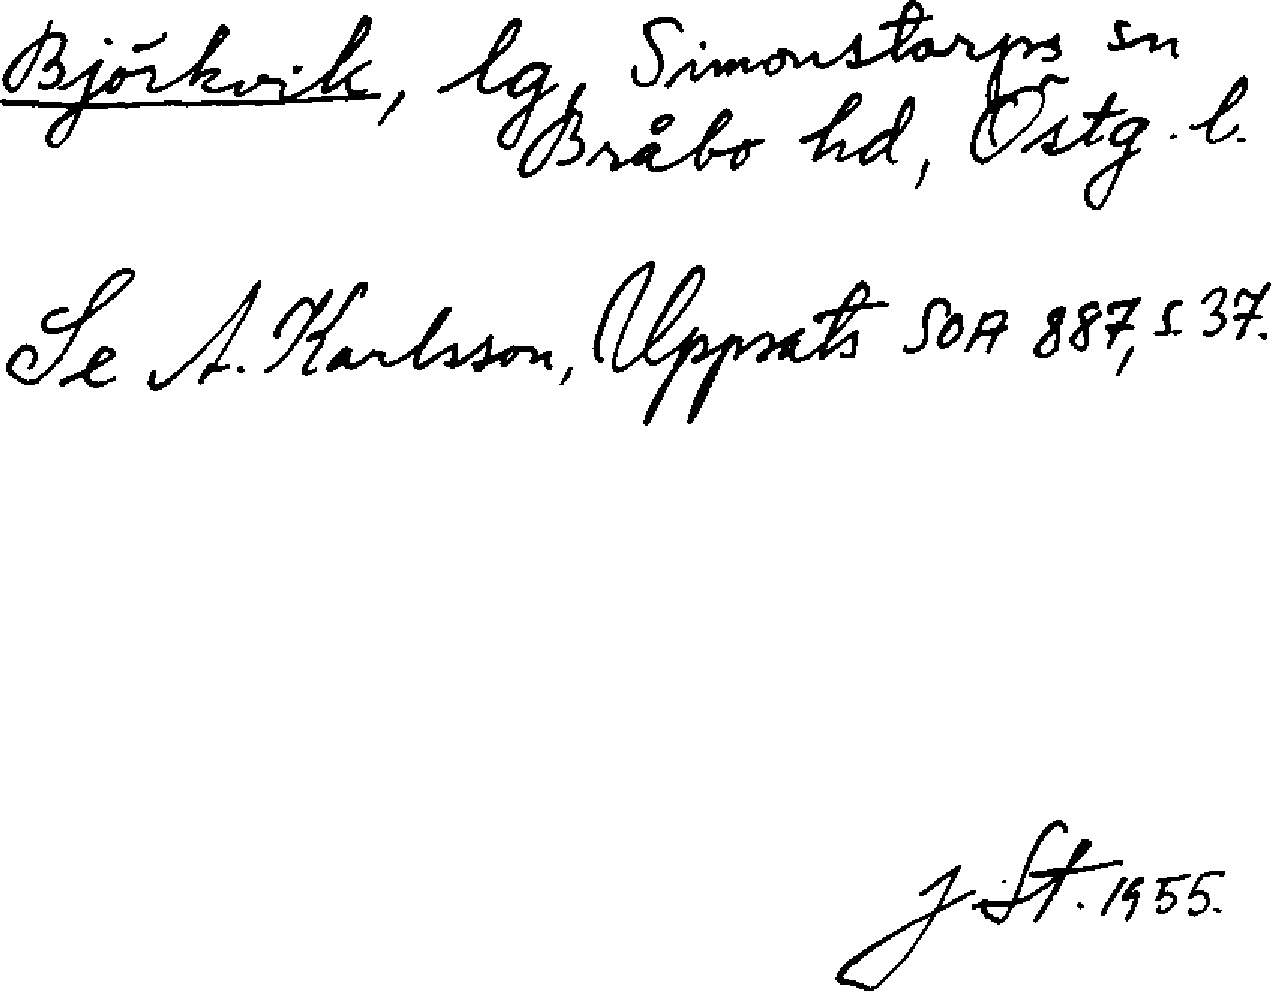 Björkvik, lg, Simonstorps sn
Bråbo hd, Östg. l.
Se A. Karlsson, Uppsats SOA 887, s 37.
J. St. 1955.